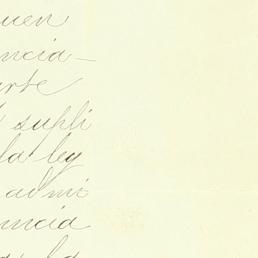 uen
ncia
rte
supli
la ley
admi
uncia
la